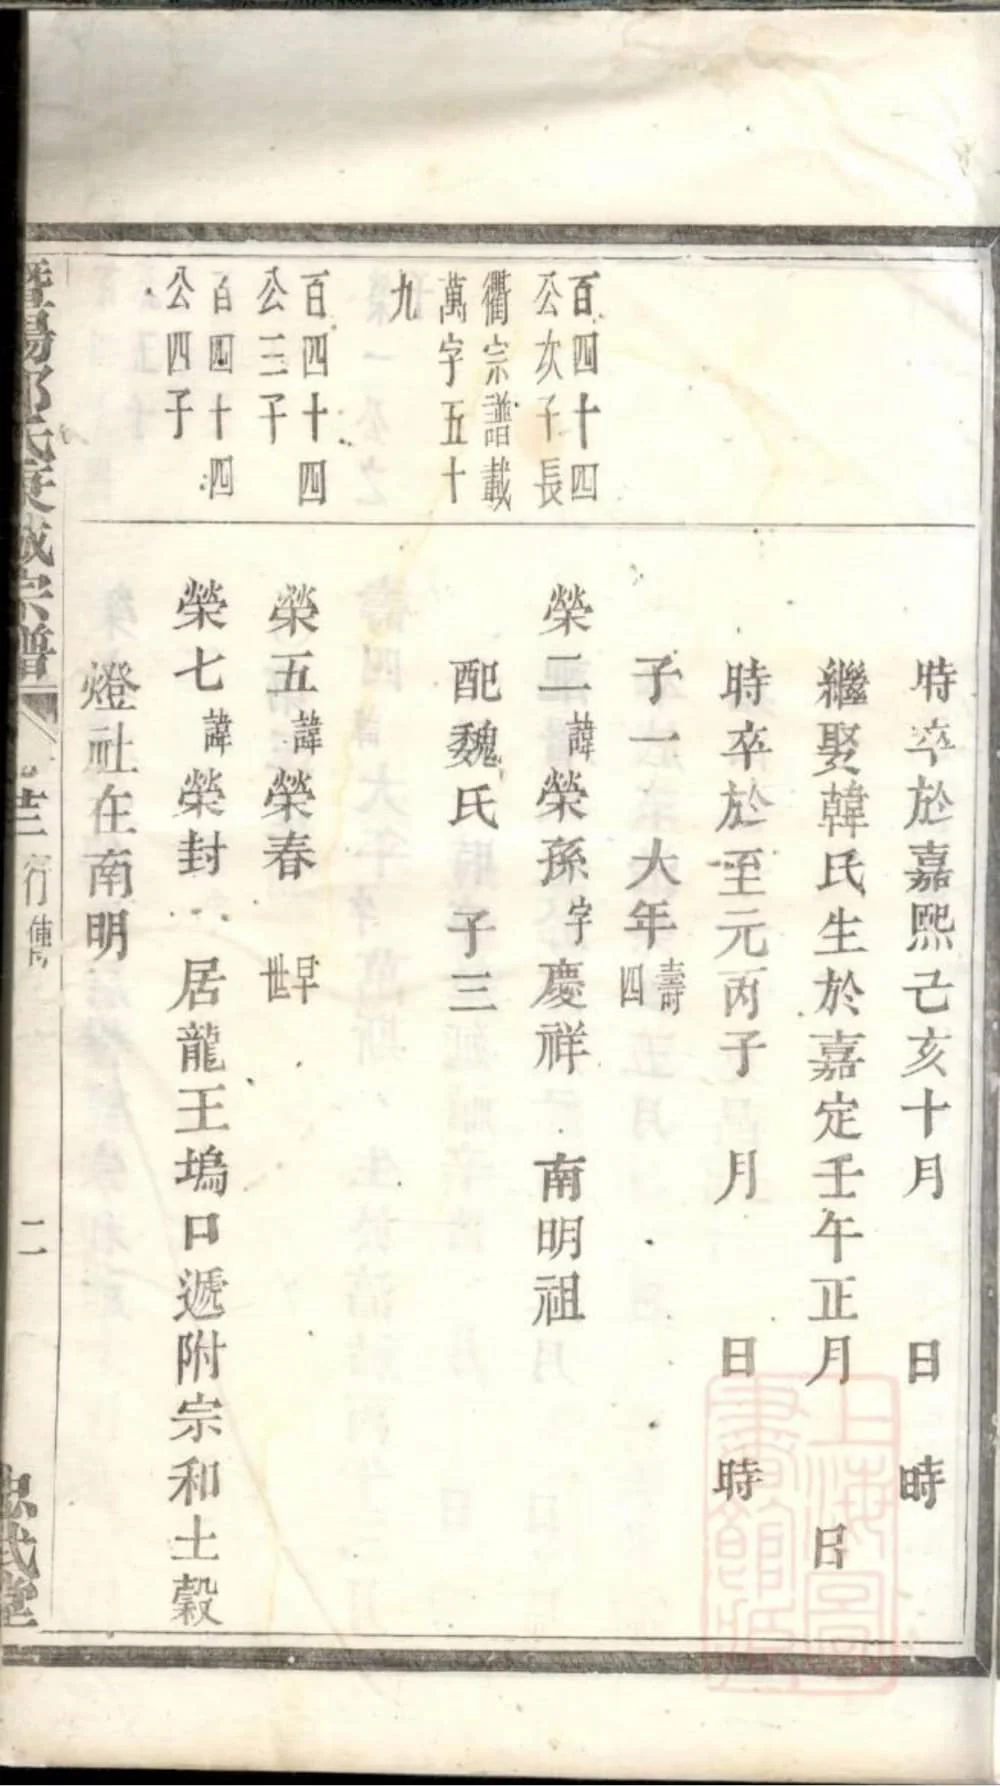 時卒於嘉熙己亥十月 日 時
繼娶韓氏生於嘉定壬午正月 日
時卒於至元丙子 月 日 時
子一 大年 壽四
百四十四
公次子長
衢宗譜載
萬字五十
九
榮二 諱 榮孫 字 慶祥 南明祖
配魏氏 子三
百四十四
公三子
榮五 諱 榮春 早世
百四十四
公四子
榮七 諱 榮封 居龍王塢口遞附宗和土穀
燈社在南明
暨陽 氏 宗譜 行傳 二 忠武堂
上海圖書館藏